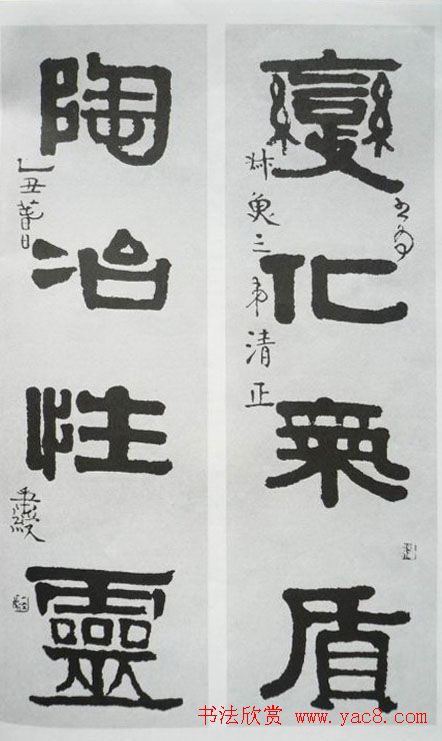 變化氣質
書為
三弟清正
陶冶性靈
乙丑春日
秉綬
书法欣赏 www.yac8.com